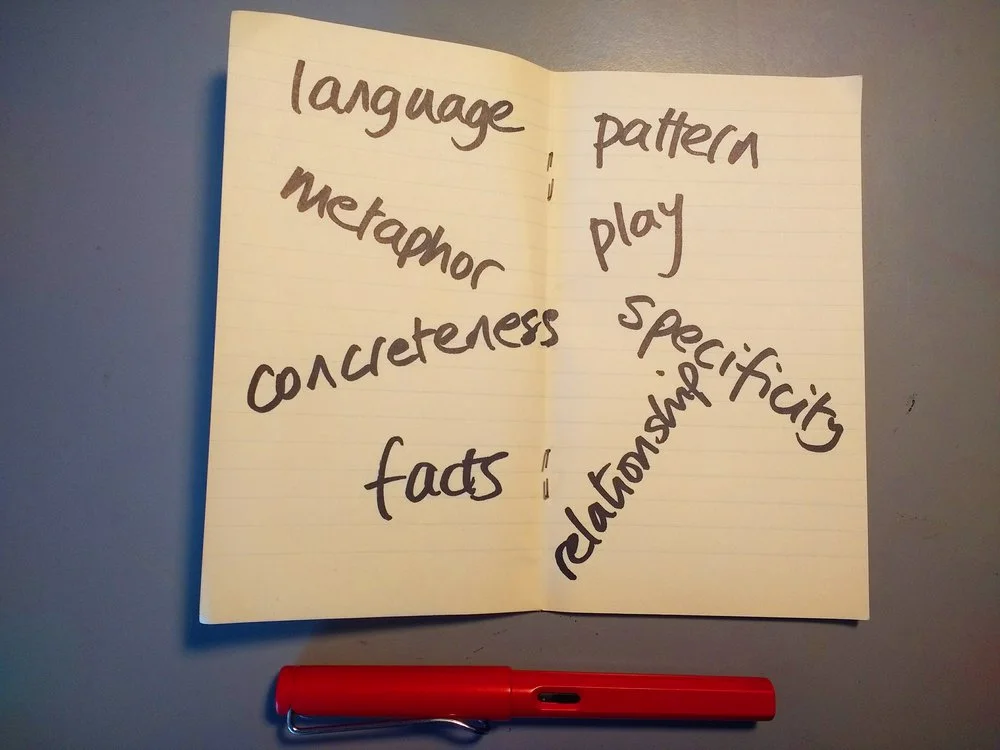 language
metaphor
concreteness
facts
pattern
play
specificity
relationship